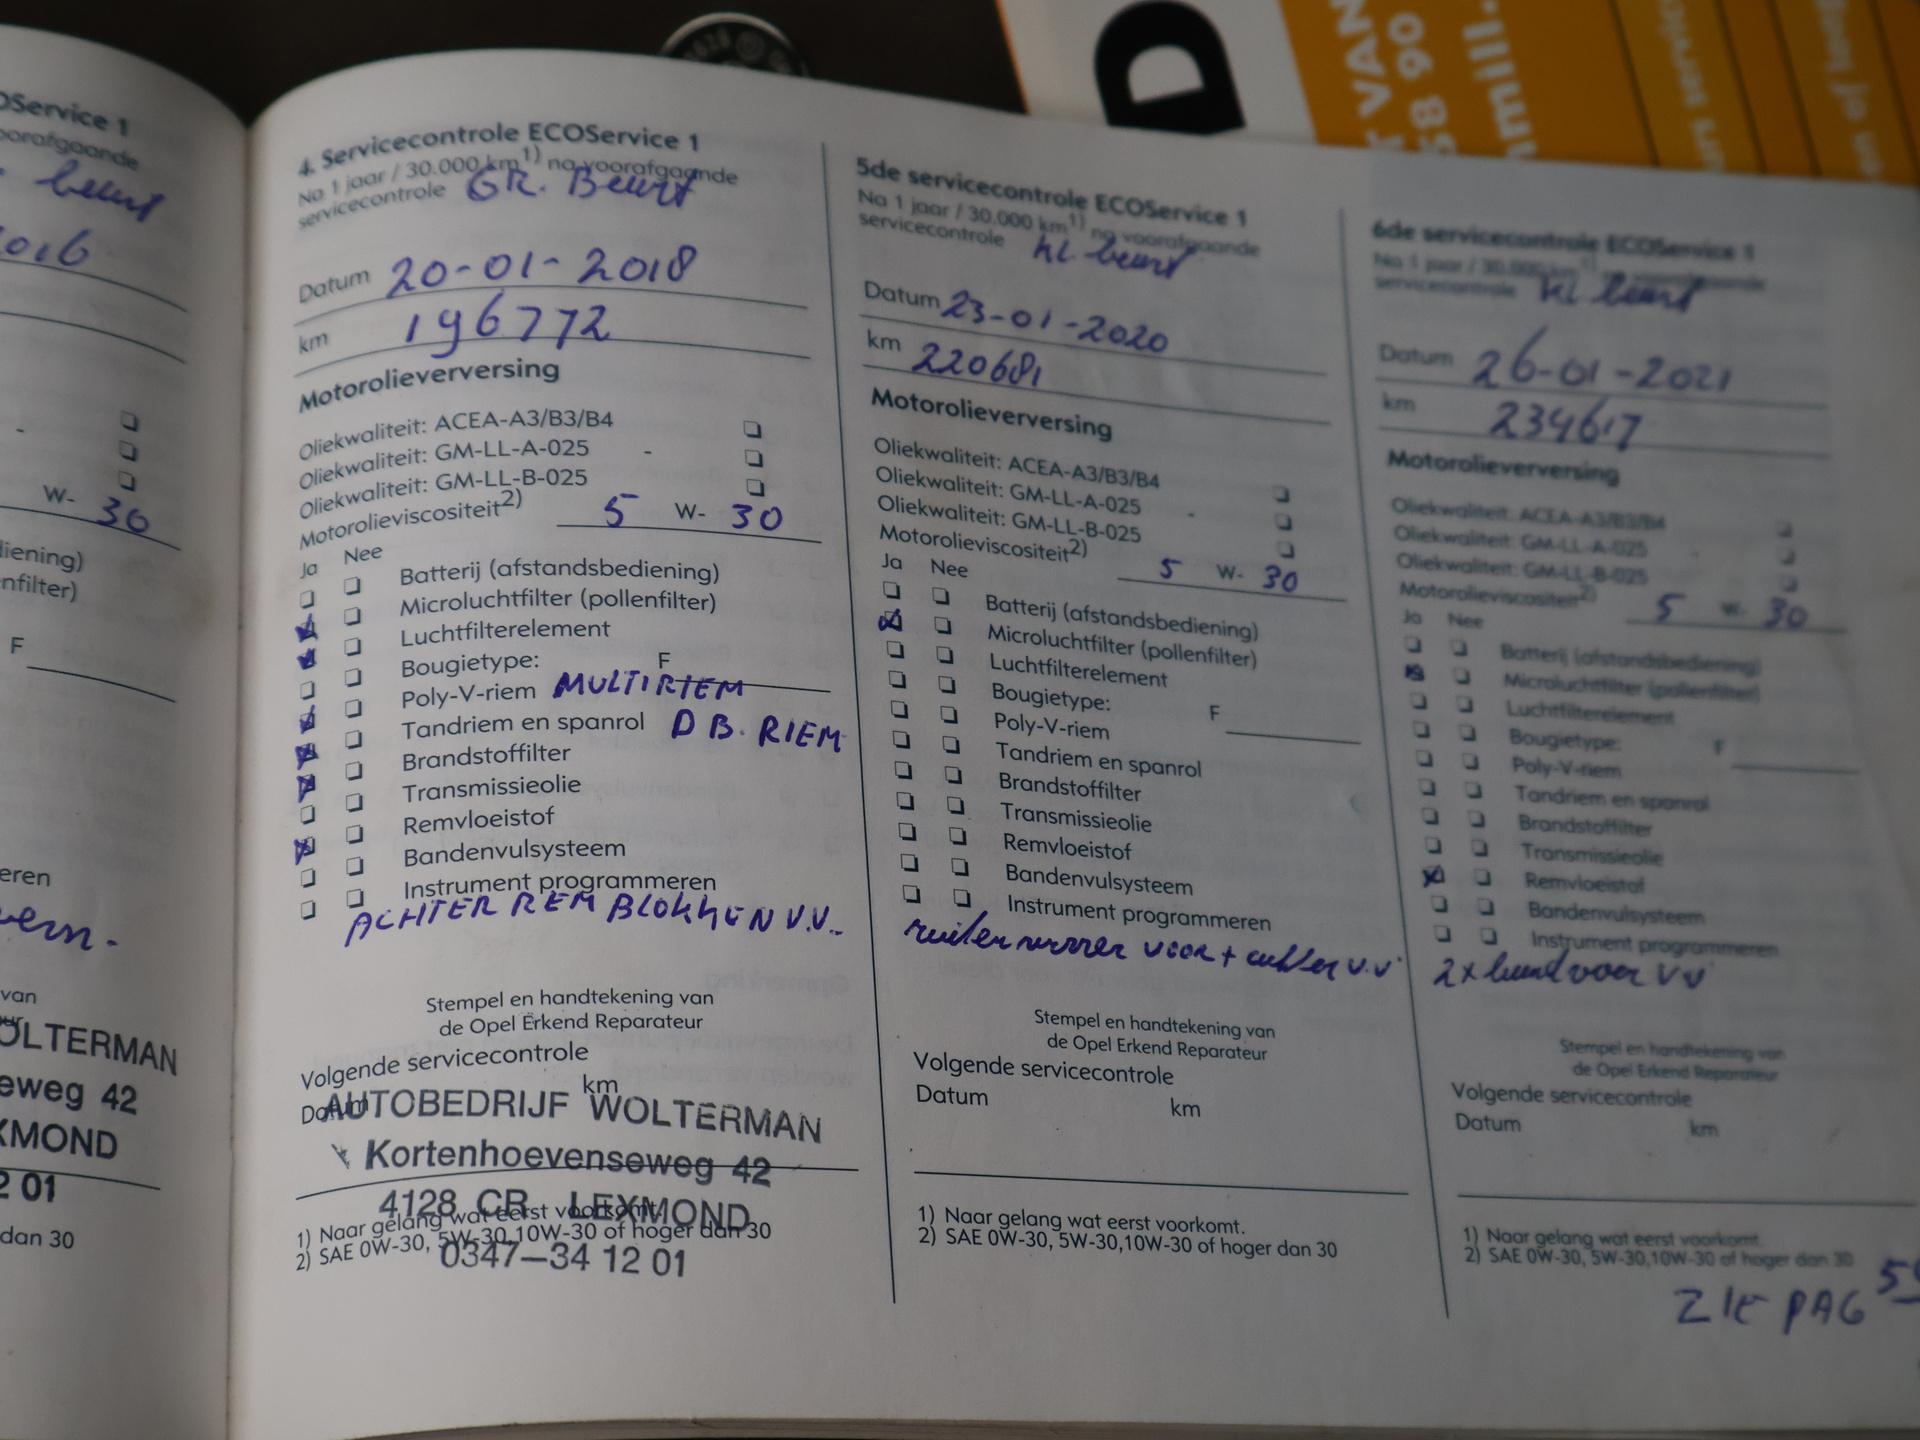 OService 1
voorafgaande
beurt
2016
W- 30
diening)
nfilter)
F
eren
van
OLTERMAN
eweg 42
XMOND
2 01
dan 30
4. Servicecontrole ECOService 1
Na 1 jaar / 30.000 km1) na voorafgaande
servicecontrole GR. Beurt
Datum 20-01-2018
km 196772
Motorolieverversing
Oliekwaliteit: ACEA-A3/B3/B4
Oliekwaliteit: GM-LL-A-025 -
Oliekwaliteit: GM-LL-B-025
Motorolieviscositeit2) 5 W- 30
Ja Nee
Batterij (afstandsbediening)
Microluchtfilter (pollenfilter)
Luchtfilterelement
Bougietype: F
Poly-V-riem MULTIRIEM
Tandriem en spanrol DB. RIEM
Brandstoffilter
Transmissieolie
Remvloeistof
Bandenvulsysteem
Instrument programmeren
ACHTER REM BLOKKEN V.V.
Stempel en handtekening van
de Opel Erkend Reparateur
Volgende servicecontrole
Datum km
AUTOBEDRIJF WOLTERMAN
Kortenhoevenseweg 42
4128 CR LEXMOND
0347-34 12 01
1) Naar gelang wat eerst voorkomt.
2) SAE 0W-30, 5W-30,10W-30 of hoger dan 30
5de servicecontrole ECOService 1
Na 1 jaar / 30.000 km1) na voorafgaande
servicecontrole kl. beurt
Datum 23-01-2020
km 220681
Motorolieverversing
Oliekwaliteit: ACEA-A3/B3/B4
Oliekwaliteit: GM-LL-A-025 -
Oliekwaliteit: GM-LL-B-025
Motorolieviscositeit2) 5 W- 30
Ja Nee
Batterij (afstandsbediening)
Microluchtfilter (pollenfilter)
Luchtfilterelement
Bougietype: F
Poly-V-riem
Tandriem en spanrol
Brandstoffilter
Transmissieolie
Remvloeistof
Bandenvulsysteem
Instrument programmeren
ruitenwisser voor + achter v.v
Stempel en handtekening van
de Opel Erkend Reparateur
Volgende servicecontrole
Datum km
1) Naar gelang wat eerst voorkomt.
2) SAE 0W-30, 5W-30,10W-30 of hoger dan 30
6de servicecontrole ECOService 1
Na 1 jaar / 30.000 km1) na voorafgaande
servicecontrole kl beurt
Datum 26-01-2021
km 234617
Motorolieverversing
Oliekwaliteit: ACEA-A3/B3/B4
Oliekwaliteit: GM-LL-A-025
Oliekwaliteit: GM-LL-B-025
Motorolieviscositeit2) 5 W- 30
Ja Nee
Batterij (afstandsbediening)
Microluchtfilter (pollenfilter)
Luchtfilterelement
Bougietype: F
Poly-V-riem
Tandriem en spanrol
Brandstoffilter
Transmissieolie
Remvloeistof
Bandenvulsysteem
Instrument programmeren
2x band voor v v
Stempel en handtekening van
de Opel Erkend Reparateur
Volgende servicecontrole
Datum km
1) Naar gelang wat eerst voorkomt.
2) SAE 0W-30, 5W-30,10W-30 of hoger dan 30
ZIE PAG
D
VAN
58 90
mill.